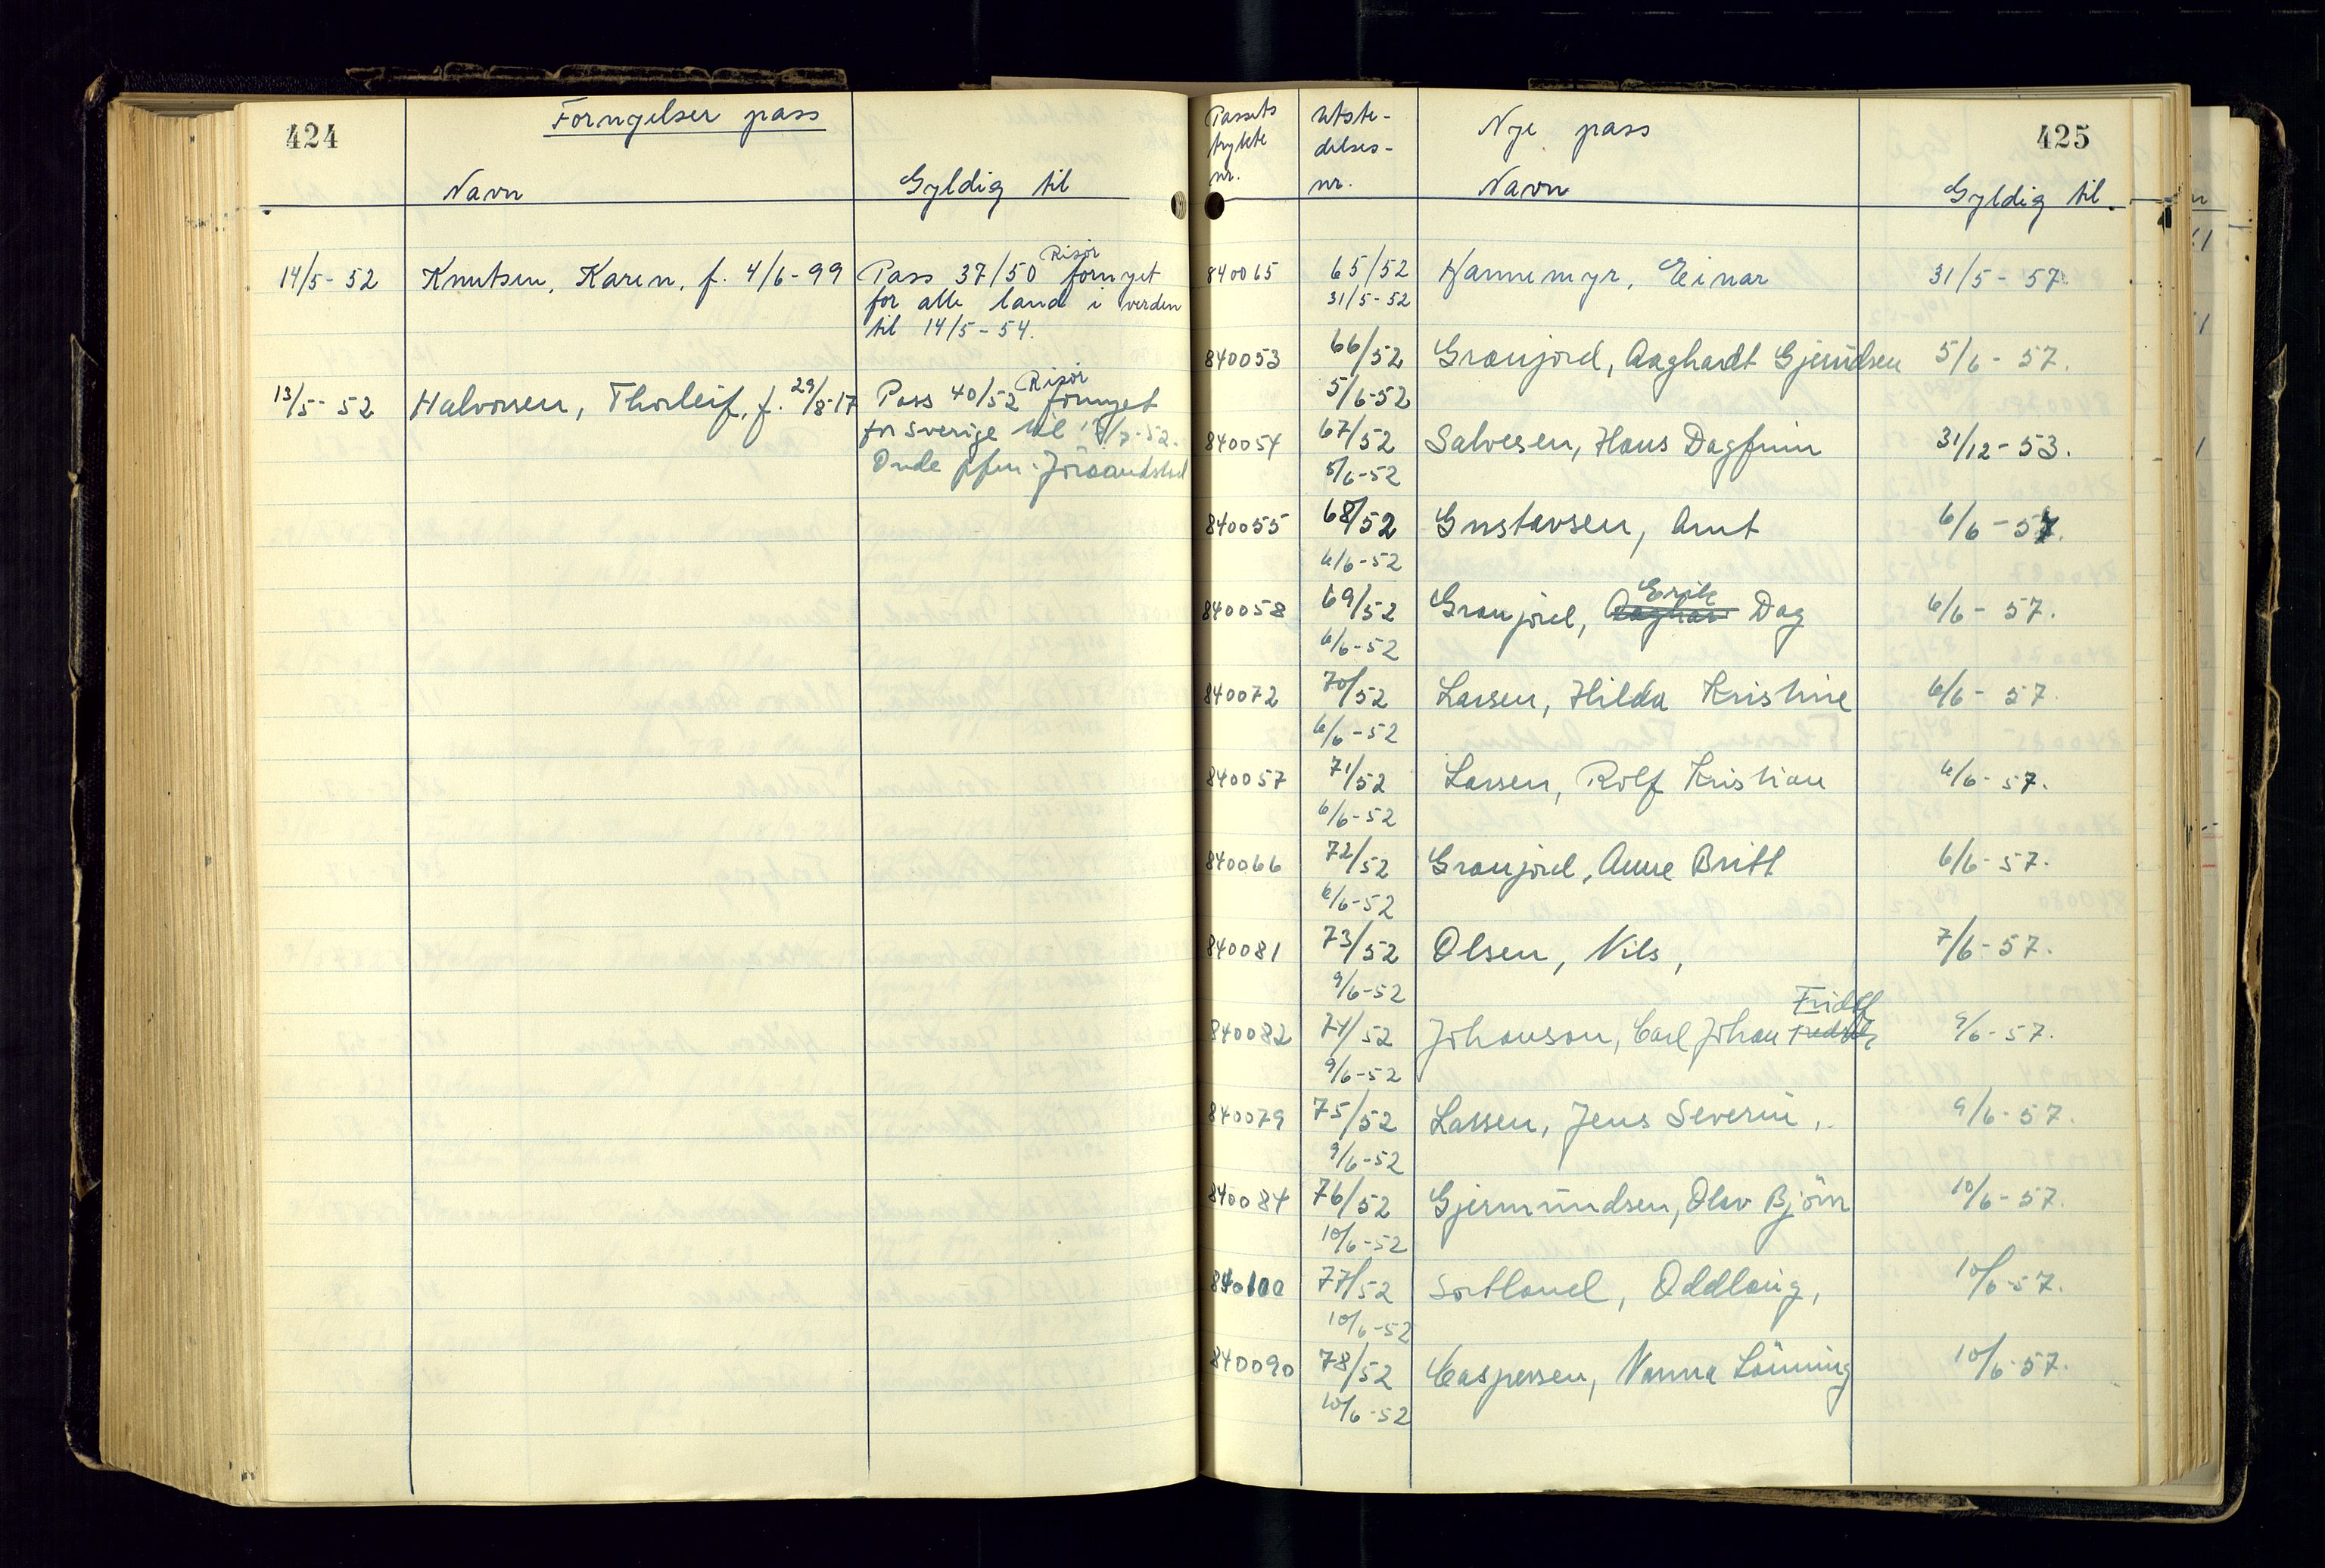 424
Fornyelser pass
Navn
Gyldig til
14/5-52 Knutsen, Karen, f. 4/6-99 Pass 37/50 Risør fornyet
for alle land i verden
til 14/5-54.
13/5-52 Halvorsen, Thorleif, f. 29/8-17 Pass 40/52 Risør fornyet
for Sverige til /7-52.
425
Passets trykte nr.
Utste-
delses-
nr.
Nye pass
Navn
Gyldig til
840065 65/52 Hannemyr, Einar 31/5-57.
31/5-52
840053 66/52 Grønjord, Aaghardt Gjerüdsen 5/6-57.
5/6-52
840054 67/52 Salvesen, Hans Dagfinn 31/12-53.
5/6-52
840055 68/52 Gustavsen, Arnt 6/6-57.
6/6-52
Erik
840058 69/52 Grønjord, Aaghar Dag 6/6-57.
6/6-52
840072 70/52 Larsen, Hilda Kristine 6/6-57.
6/6-52
840057 71/52 Larsen, Rolf Kristian 6/6-57.
6/6-52
840066 72/52 Grønjord, Anne Britt 6/6-57.
6/6-52
840081 73/52 Olsen, Nils, 7/6-57.
9/6-52
Fridolf
840082 74/52 Johanson, Carl Johan 9/6-57.
9/6-52
840079 75/52 Larsen, Jens Severin, 9/6-57.
9/6-52
840084 76/52 Gjermündsen, Olav Björn 10/6-57.
10/6-52
840100 77/52 Sortland, Oddlaug, 10/6-57.
10/6-52
840090 78/52 Caspersen, Nanna Lönning 10/6-57.
10/6-52